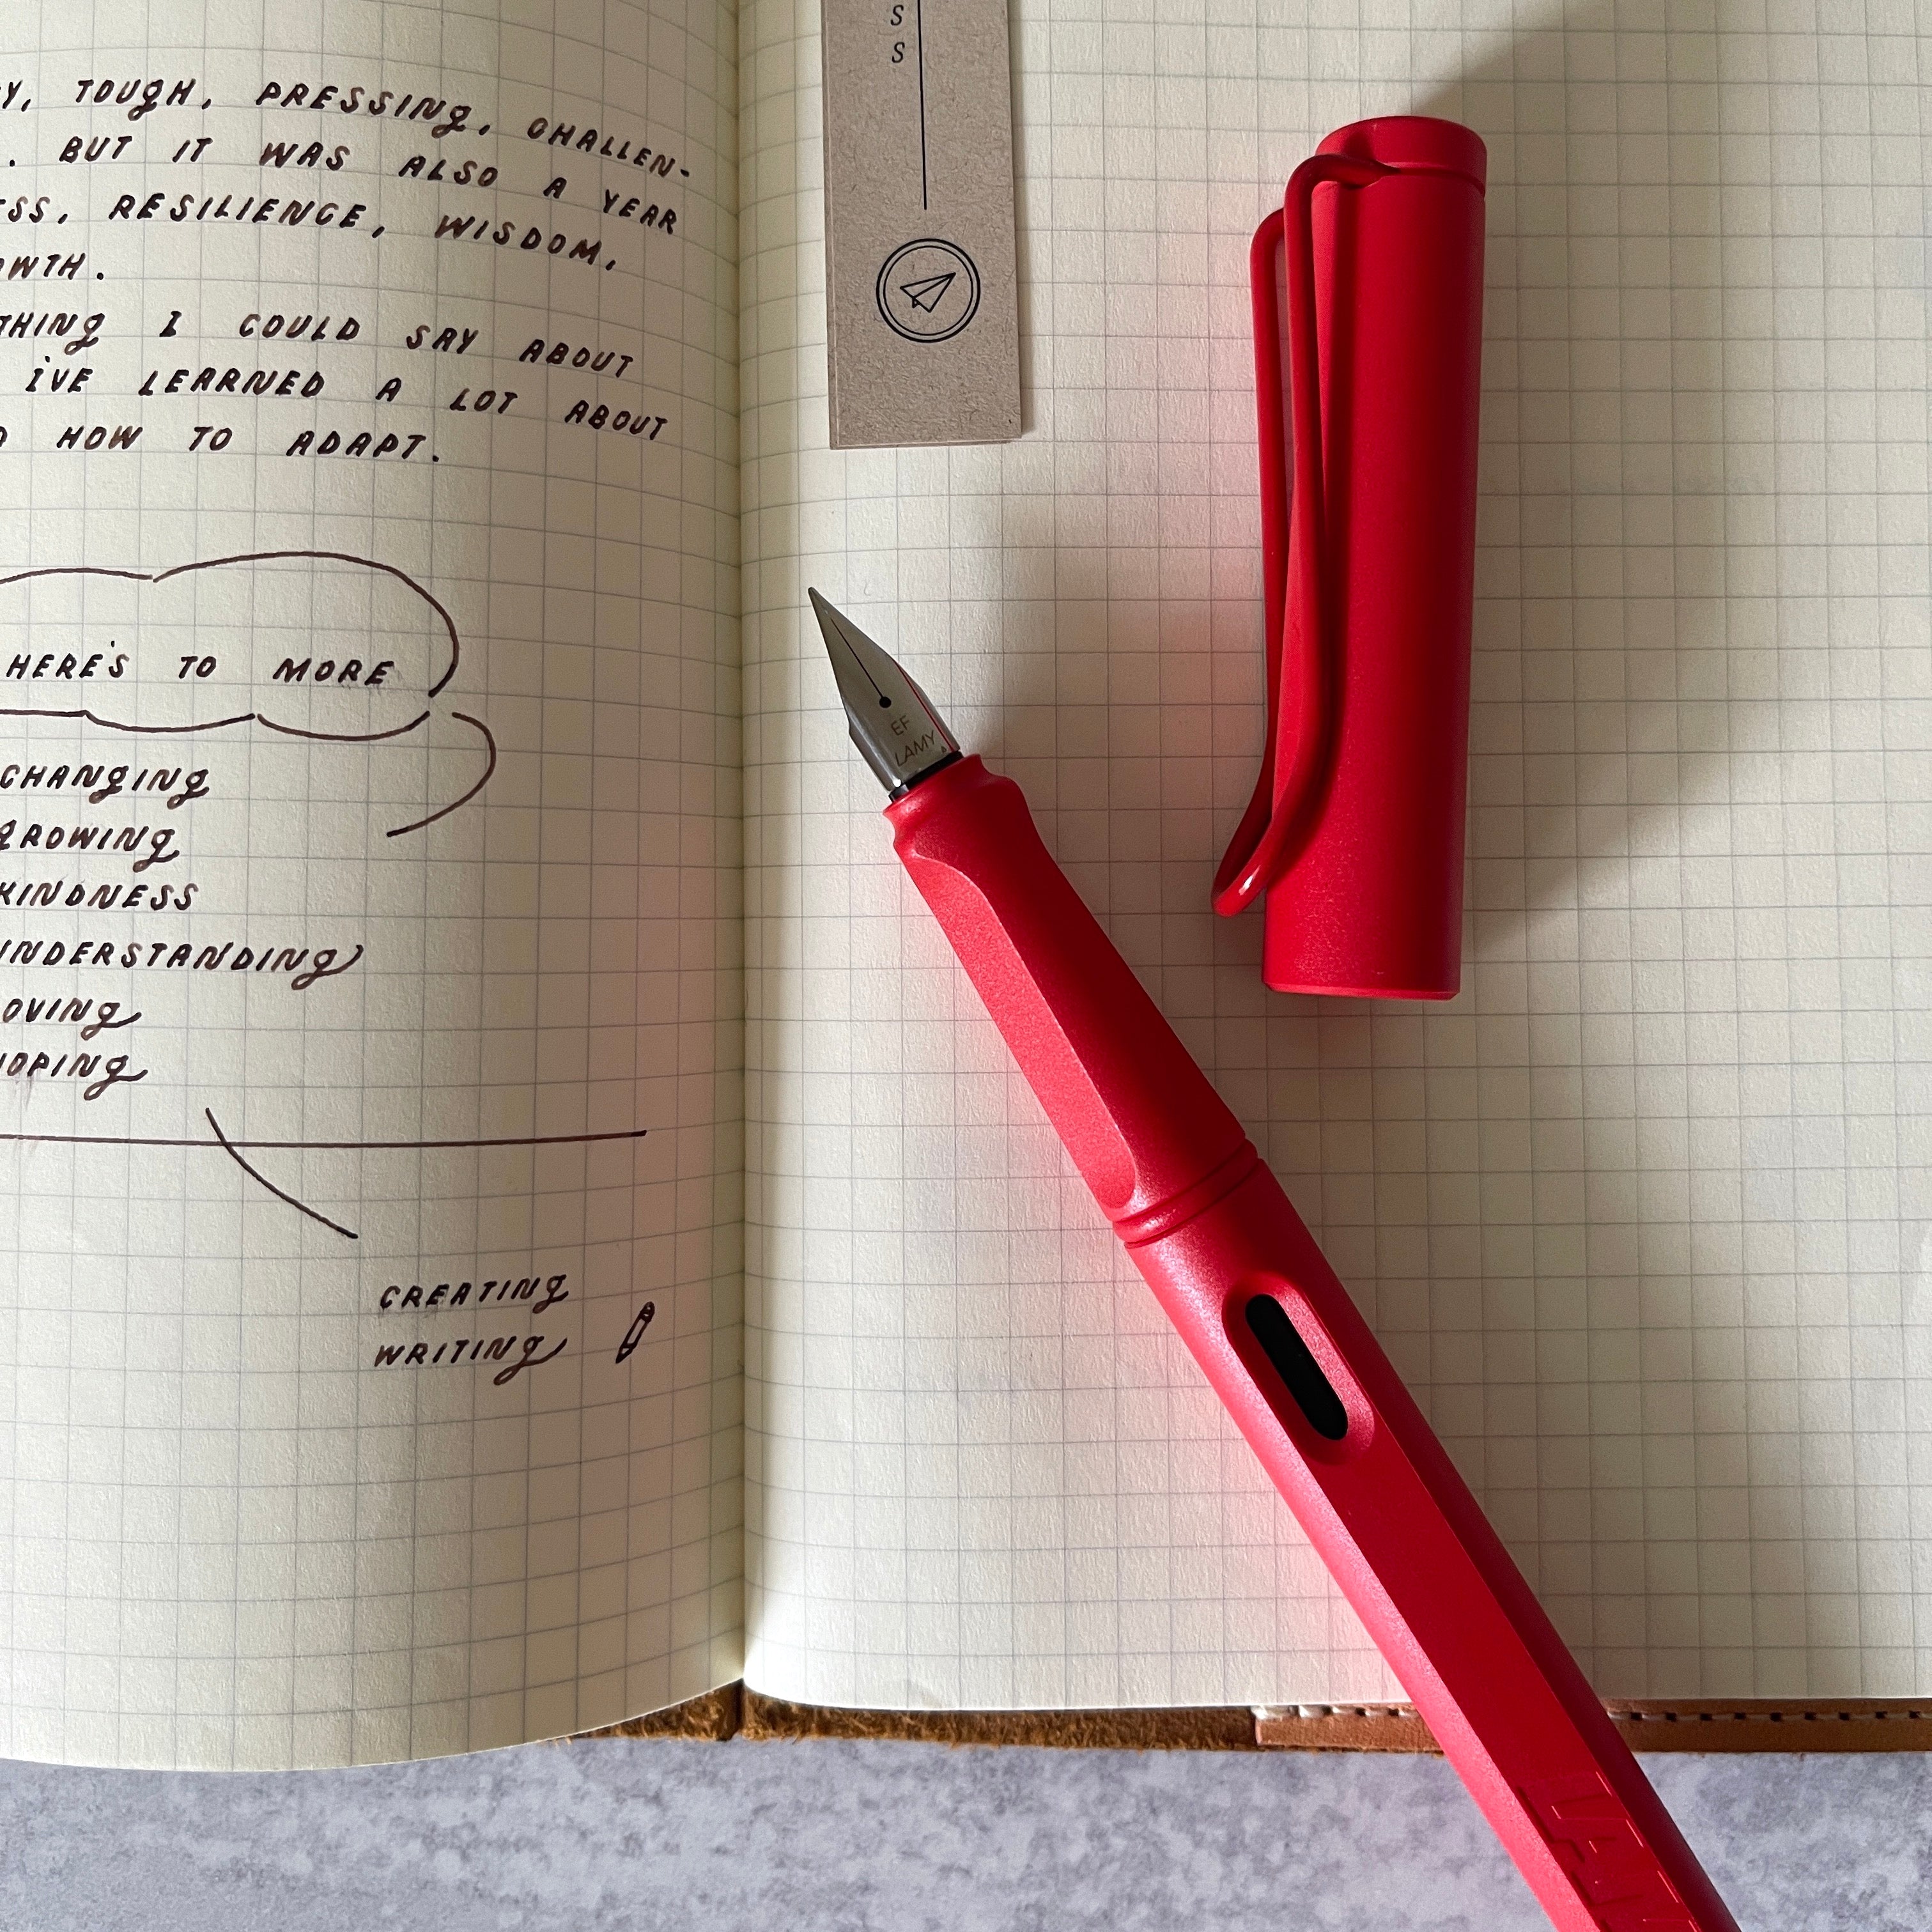 Y, TOUGH, PRESSING, CHALLEN-
. BUT IT WAS ALSO A YEAR
ESS, RESILIENCE, WISDOM,
OWTH.
THING I COULD SAY ABOUT
I'VE LEARNED A LOT ABOUT
D HOW TO ADAPT.
HERE'S TO MORE
CHANGING
GROWING
KINDNESS
UNDERSTANDING
OVING
HOPING
CREATING
WRITING
S
S
EF
LAMY
LAMY